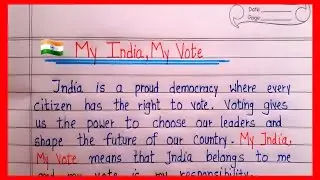 Date
Page
My India, My Vote
India is a proud democracy where every
citizen has the right to vote. Voting gives
us the power to choose our leaders and
shape the future of our country. My India,
My Vote means that India belongs to me
and my vote is my responsibility.